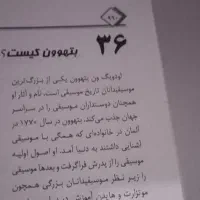 ۹۹۰
۳۶ بتهوون کیست؟
لودویگ ون بتهوون یکی از بزرگ‌ترین
موسیقیدانان تاریخ موسیقی است. نام و آثار او
همچنان دوستداران موسیقی را در سراسر
جهان جذب می‌کند. بتهوون در سال ۱۷۷۰ در
آلمان در خانواده‌ای که همگی با موسیقی
آشنایی داشتند به دنیا آمد. او اصول اولیه
موسیقی را از پدرش فراگرفت و بعدها موسیقی
را زیر نظر موسیقیدانان بزرگی همچون
موتزارت و هایدن آموزش